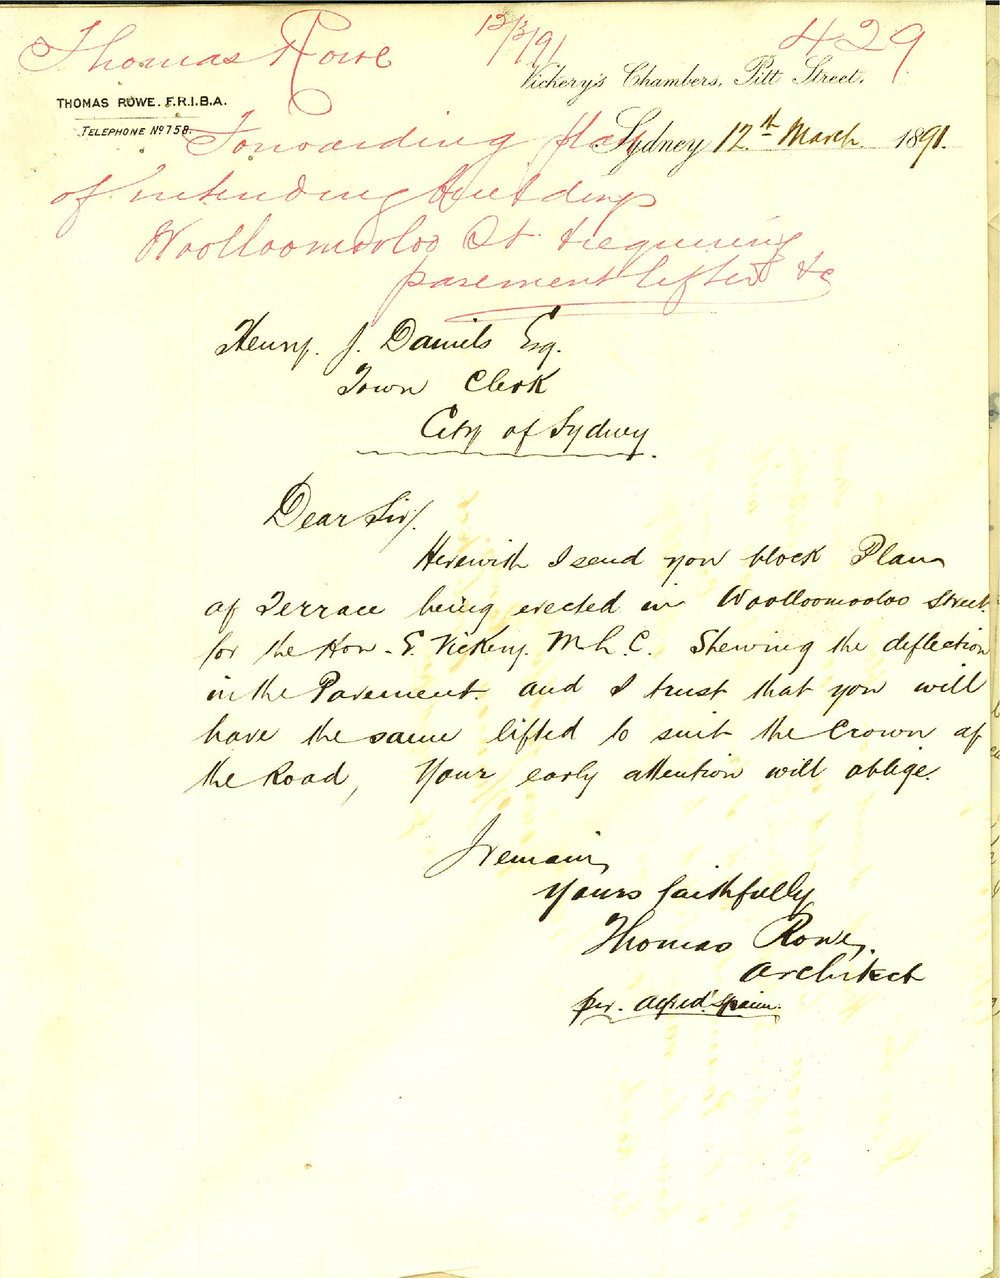 Thomas Rowe
12/3/91
429
Vickery's Chambers, Pitt Street,
THOMAS ROWE. F.R.I.B.A.
TELEPHONE Nº 758.
Sydney 12th March 1891.
Forwarding plan
of intending buildings
Woolloomooloo St. & requiring
pavement lifted &c
Henry. J. Daniels Esq.
Town Clerk
City of Sydney.
Dear Sir/.
Herewith I send you block Plan
of Terrace being erected in Woolloomooloo Street
for the Hon. E. Vickery. M L. C. Shewing the deflection
in the Pavement. and I trust that you will
have the same lifted to suit the Crown of
the Road, Your early attention will oblige.
I remain,
Yours faithfully
Thomas Rowe,
Architect
per. Alfred Spain.